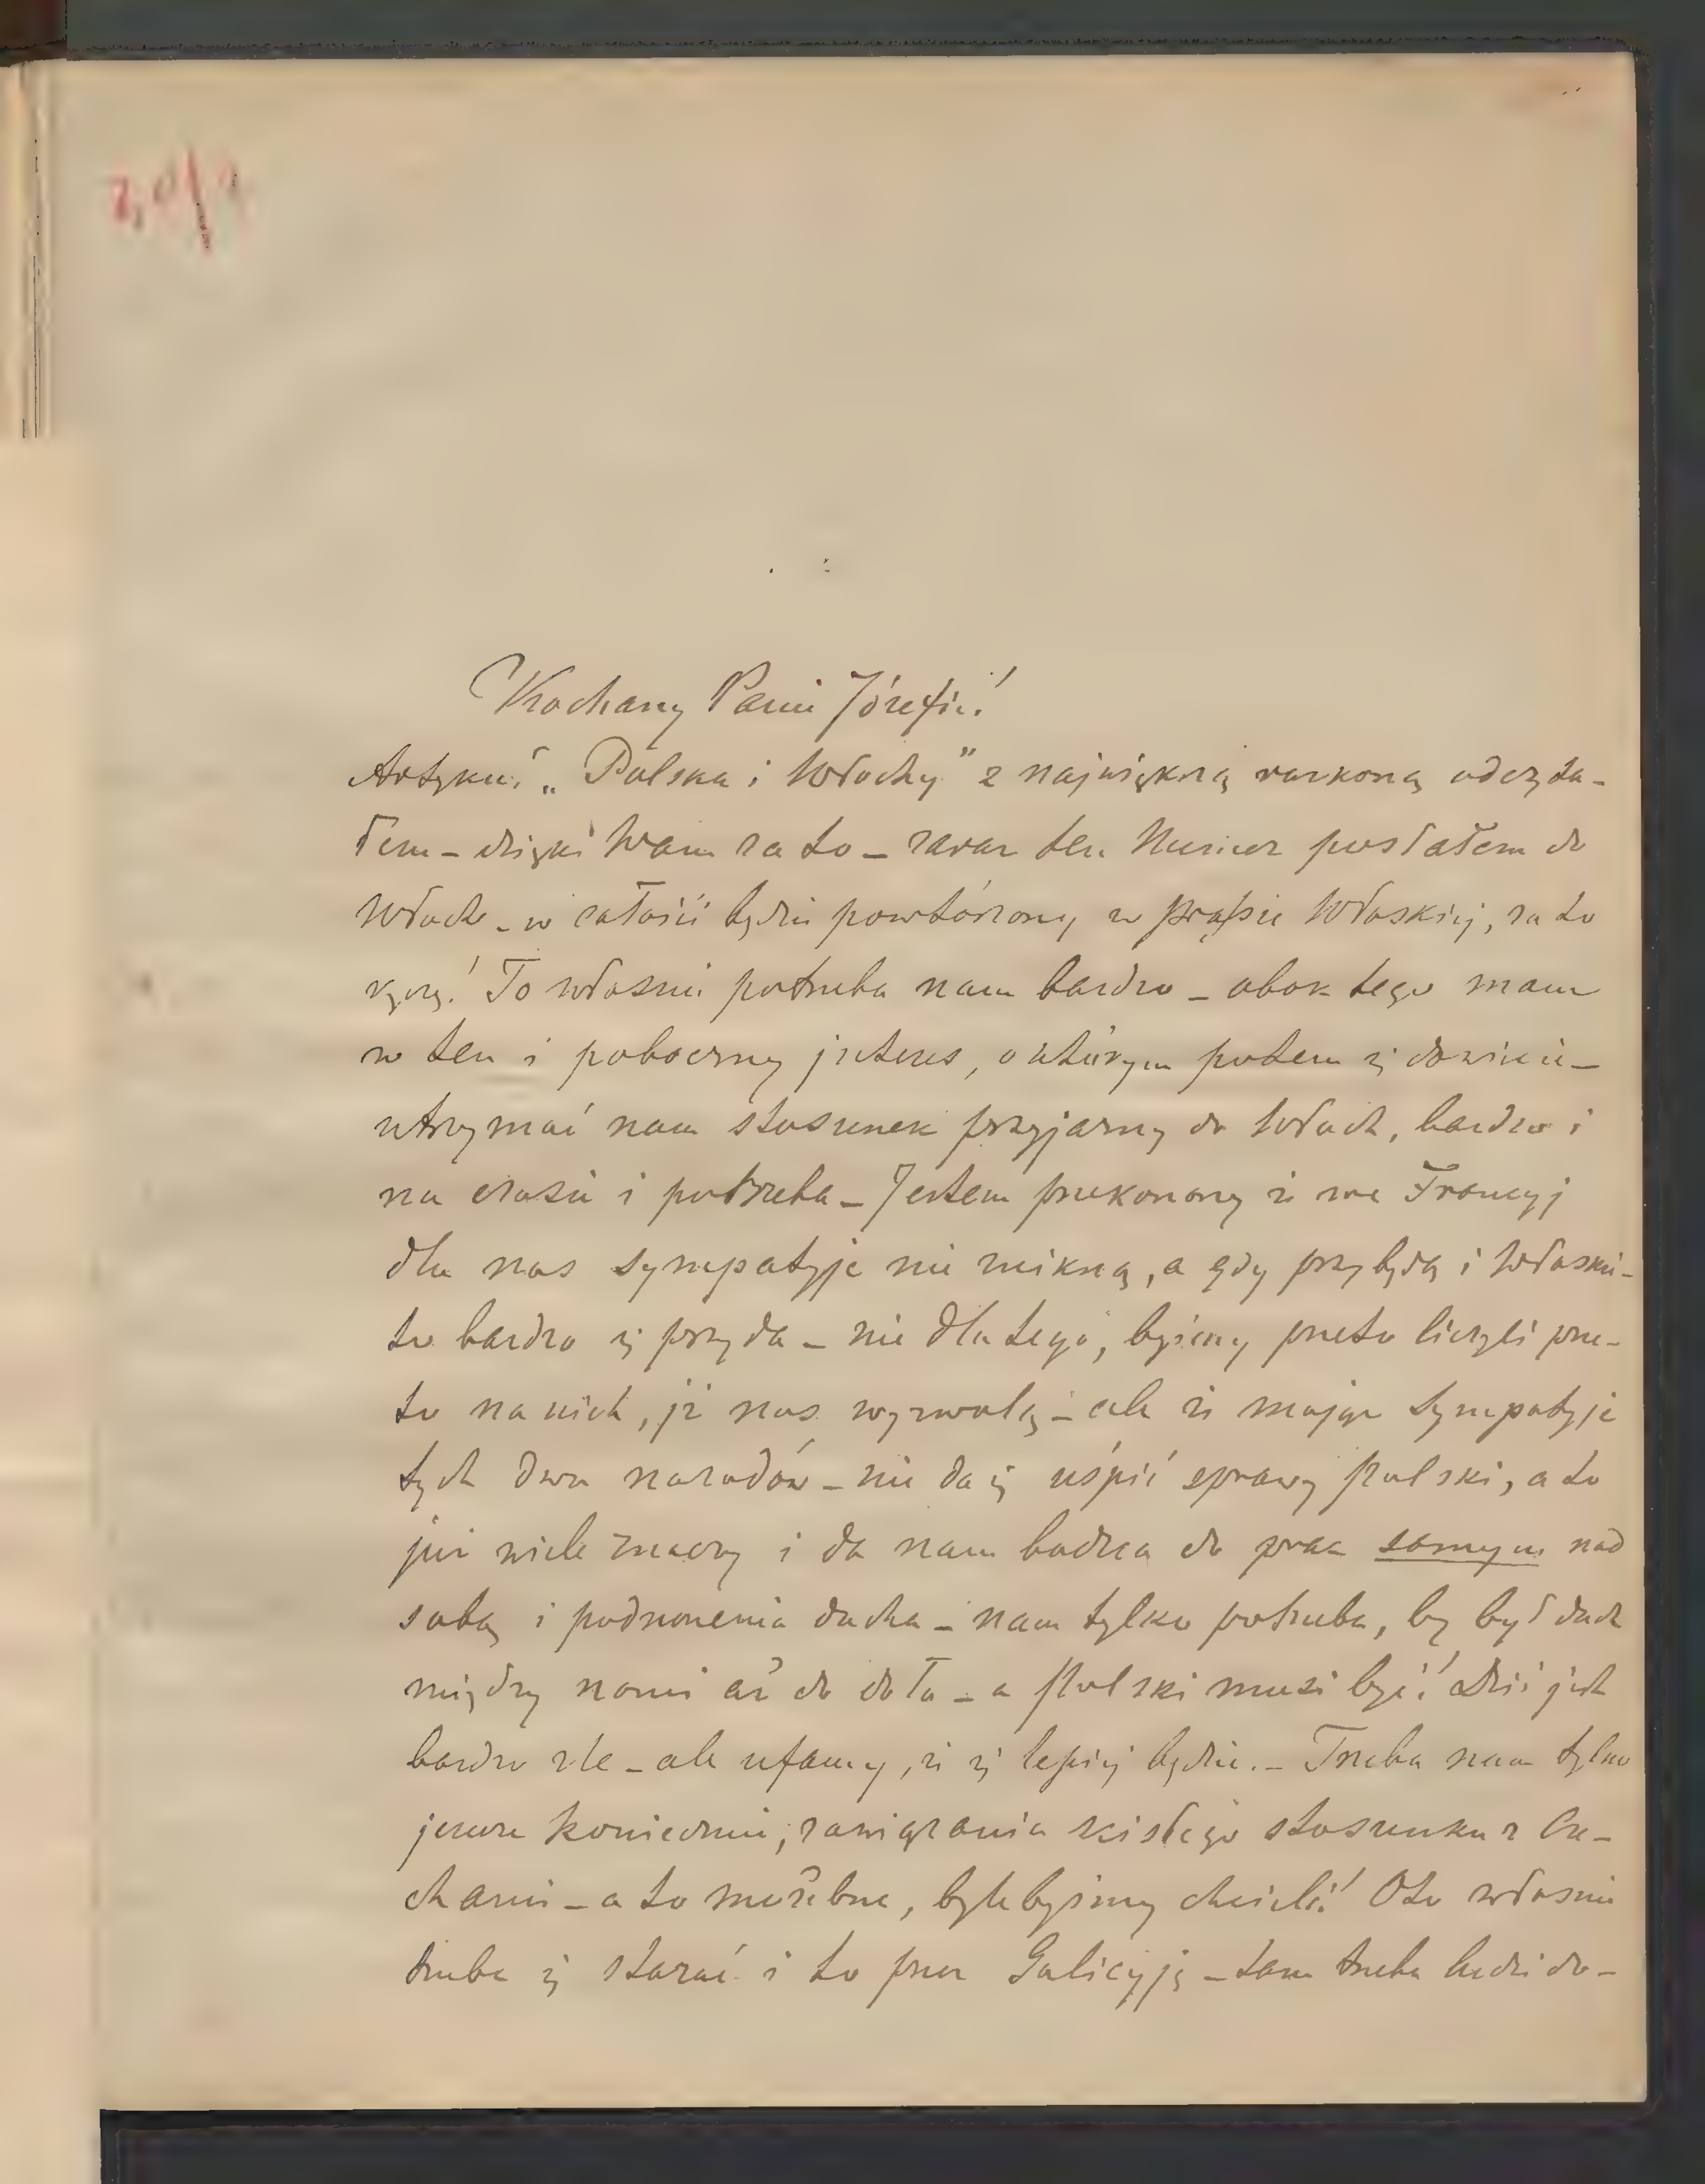 Kochany Panie Józefie!
Artykuł „Polska i Włochy" z największą rozkoszą odczyta-
łem – dzięki Wam za to – zaraz ten Numer posłałem do
Włoch – w całości będzie powtórzony w prasie Włoskiej, za to
ręczę! To właśnie potrzeba nam bardzo – obok tego mam
w ten i poboczny jnteres, o którym potem się dowiecie –
utrzymać nam stosunek przyjazny do Włoch, bardzo i
na czasie i potrzeba – Jestem przekonany że we Francyj
dla nas sympatyje nie znikną, a gdy przybędą i Włoskie –
to bardzo się przyda – nie dla tego, byśmy przeto liczyli prze-
to na nich, jż nas wyzwolą – ale że mając sympatyje
tych dwu narodów – nie da się uśpić sprawy Polski, a to
już wiele znaczy i da nam bodźca do prac samym nad
sobą i podnoszenia ducha – nam tylko potrzeba, by był duch
między nami aż do doła – a Polski musi być! Dziś jest
bardzo źle – ale ufamy, że się lepiej będzie. – Trzeba nam tylko
jeszcze koniecznie, zawiązania ścisłego stosunku z Cze-
chami – a to możebne, bylebyśmy chcieli! Oto właśnie
trzeba się starać i to przez Galicyję – tam trzeba ludzi do-